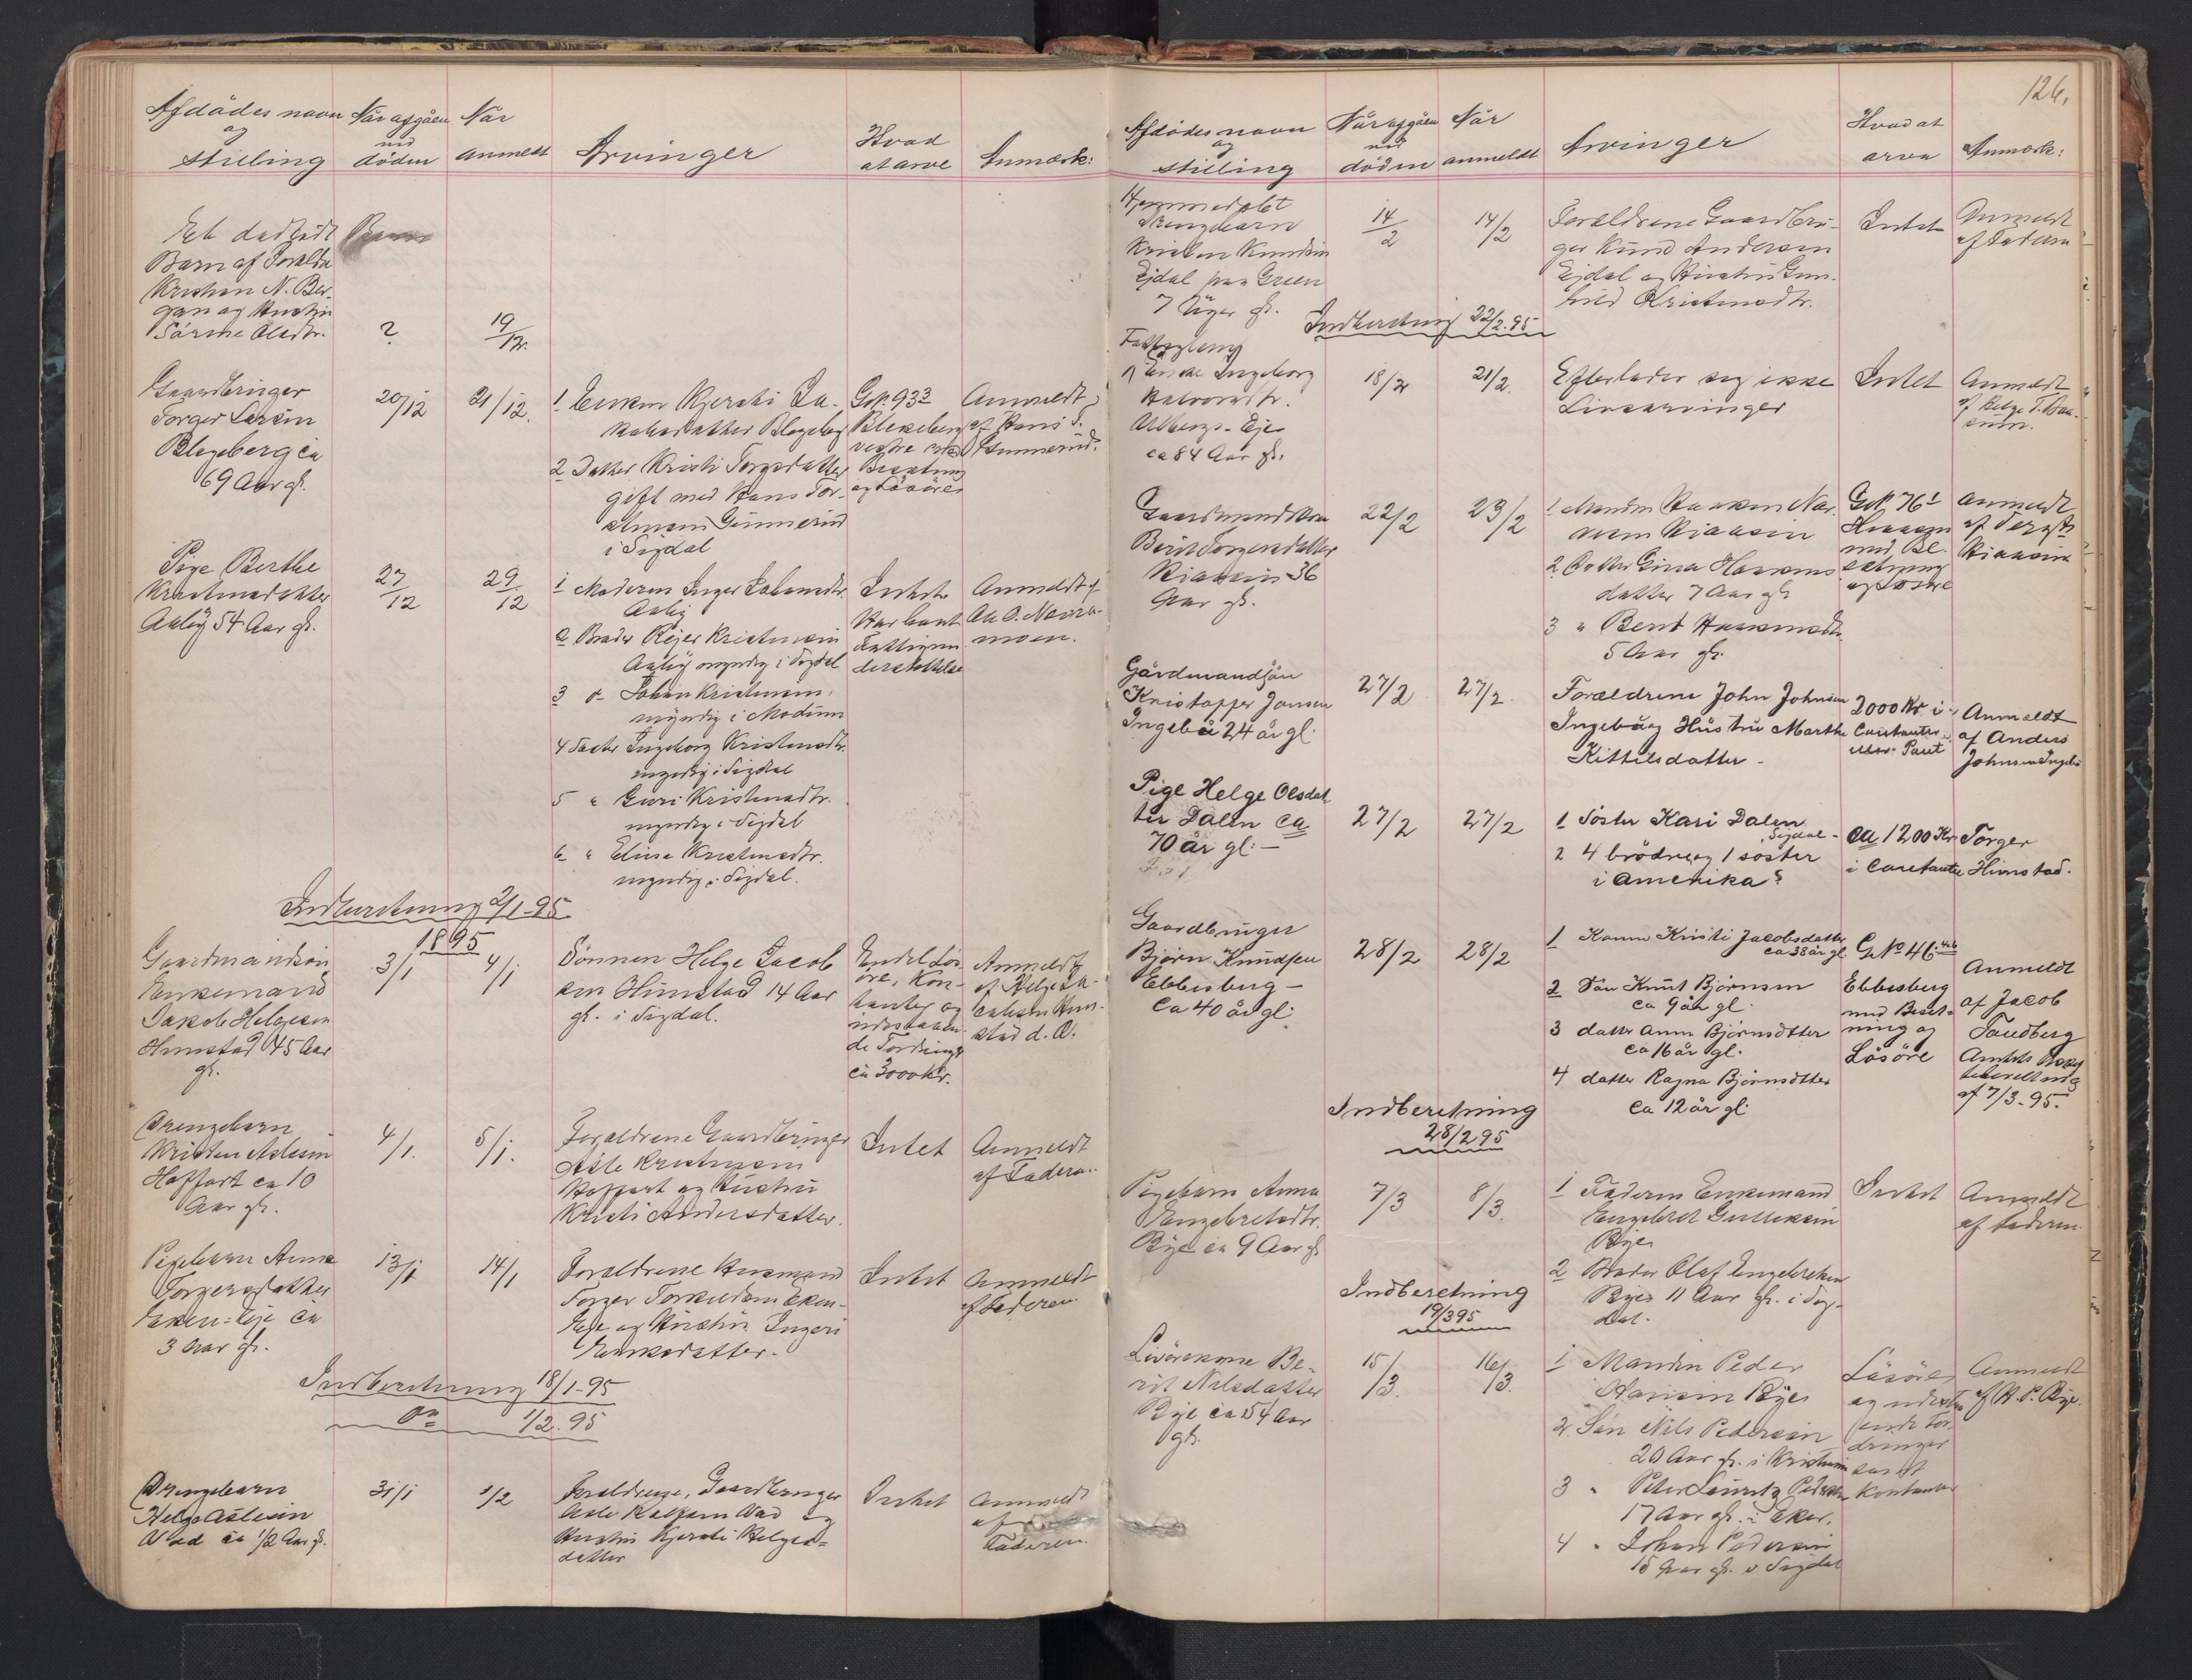 Afdødes navn
og
stilling
Når afgåen
ved
døden
Når
anmeldt
Arvinger
Hvad
at arve
Anmærk:
Et dødfødt
Barn af Foreldre
Kristian N. Ber-
gan og Hustru
Olsdtr.
?
19/12.
Gaardbruger
Torger Larsen
Blegeberg ca
69 Aar gl.
20/12
21/12.
1 Enken Kjersti Ja-
kobsdatter Blegeberg
2 Datter Kristi Torgersdatter
gift med Hans Tor-
stensen Gunnerud
i Sigdal
G.N. 93 2
Blekeberg
vestre med
Besetning
og Løsøre
Anmeldt
af Hans T.
Gunnerud.
Pige Berthe
Kristensdatter
Aasby 54 Aar gl.
27/12
29/12
1 Moderen Inger Johansdtr.
Aaby
2 Broder Reier Kristensen
Aaby myndig i Sigdal
3 d Johan Kristensen,
myndig i Modum
4 Søster Ingeborg Kristensdtr.
myndig i Sigdal
5 " Guri Kristensdtr.
myndig i Sigdal
6 " Eline Kristensdtr.
myndig i Sigdal.
Intet
Har havt
Fattigun
derstøttelse
Anmeldt af
Ole O. Narra-
moen.
Indberetning 2/1-95.
1895
Gaardmandsøn
Enkemand
Jakob Helgesen
Hunstad 45 Aar
gl.
3/1
4/1
Sønnen Helge Jacob
sen Hunstad 14 Aar
gl. i Sigdal.
Endel Løs
øre, Kon-
tanter og
udestaaen-
de Fordringer
ca 3000 Kr.
Anmeldt
af Helge Ja-
cobsen Hun-
stad d. Æ.
Drengebarn
Kristen Aslesen
Hoffart ca 10
Aar gl.
4/1.
5/1.
Foreldrene Gaardbruger
Asle Kristensen
Hoffart og Hustru
Kristi Andersdatter.
Intet
Anmeldt
af Faderen.
Pigebarn Anne
Torgersdatter
Eken-Eje ca
3 Aar gl.
13/1
14/1
Foreldrene Husmand
Torger Torkildsen Eken-
Eje og Hustru Ingeri
Eriksdatter.
Intet
Anmeldt
af Faderen
Indberetning 18/1-95
Do 1/2.95
Drengebarn
Helge Aslesen
Vad ca 1/2 Aar gl.
31/1
1/2
Foreldrene, Gaardbruger
Asle Vad og
Hustru Kjersti Helges-
datter
Intet
Anmeldt
af
Faderen.
126.
Afdødes navn
og
stilling
Når afgåen
ved
døden
Når
anmeldt
Arvinger
Hvad at
arve
Anmærk:
Hjemmedøbt
Drengebarn
Kristen Knudsen
Ejdal paa Green
7 Uger gl.
14/2
14/2
Foreldrene Gaardbru-
ger Knud Andersen
Ejdal og Hustru Gun-
hild Kristensdtr.
Intet
Anmeldt
af Faderen
Indberetning 22/2.95
Fattiglem
Enke Ingeborg
Halvorsdtr.
Albergs-Eje
ca 84 Aar gl.
18/2
21/2
Efterlader sig ikke
Livsarvinger
Intet
Anmeldt
af Helge T.
Gaardmandskone
Berit Torgersdatter
Kiaasen 36
Aar gl.
22/2
23/2
1 Manden Haaken Nar.
vesen Kiaasen
2 Datter Gina Haakens
datter 7 Aar gl.
3 " Berit Haakensdtr.
5 Aar gl.
G.N. 76 1
med Be-
sætning
og Løsøre
Anmeldt
af
Kiaasen
Gårdmandsøn
Kristoffer Jonsen
Ingebu 24 år gl.
27/2
27/2.
Forældrene John Johnsen
Ingebu og Hustru Marthe
Kittilsdatter -
2000 Kr i
Contanter
Anmeldt
af Anders
Johnsen Ingebu
Pige Helge Olsdat
ter Dalen ca
70 år gl: -
27/2
27/2
1 Søster Kari Dalen
Sigdal -
2 4 brødre og 1 søster
i Amerika?
ca 1200 Kr
i Contanter
Torger
Himstad.
Gaardbruger
Bjørn Knudsen
Ebbesberg -
ca 40 år gl:
28/2
28/2
1 Konen Kristi Jacobsdatter
ca 38 år gl
2 Søn Knut Bjørnsen
ca 9 år gl
3 datter Anne Bjørnsdtter
ca 16 år gl.
4 datter Ragna Bjørnsdtter
ca 12 år gl:
G No 46
Ebbesberg
med Beset-
ning og
Løsøre
Anmeldt
af Jacob
Sandberg
af 7/3-95.
Indberetning
28/2 95
Pigebarn Anna
Engebretsdtr.
Bye ca 9 Aar gl
7/3
8/3.
1 Faderen Enkemand
Engebret Gulliksen
Bye
2 Broder Olaf Engebretsen
Bye 11 Aar gl. i Sig-
dal.
Intet
Anmeldt
af Faderen
Indberetning
19/3 95
Livørekone Be-
rit Nilsdatter
Bye ca 54 Aar
gl.
15/3.
16/3.
1 Manden Peder
Hansen Bye
2. Søn Nils Pedersen
20 Aar gl. i Kristiania
3 " Peter Lauritz Pedersen
17 Aar gl. i Eker.
4 " Johan Pedersen
15 Aar gl. i Sigdal
Løsøre
og udestaa
ende For-
dringer
samt
Kontanter
Anmeldt
af H. P. Bye.